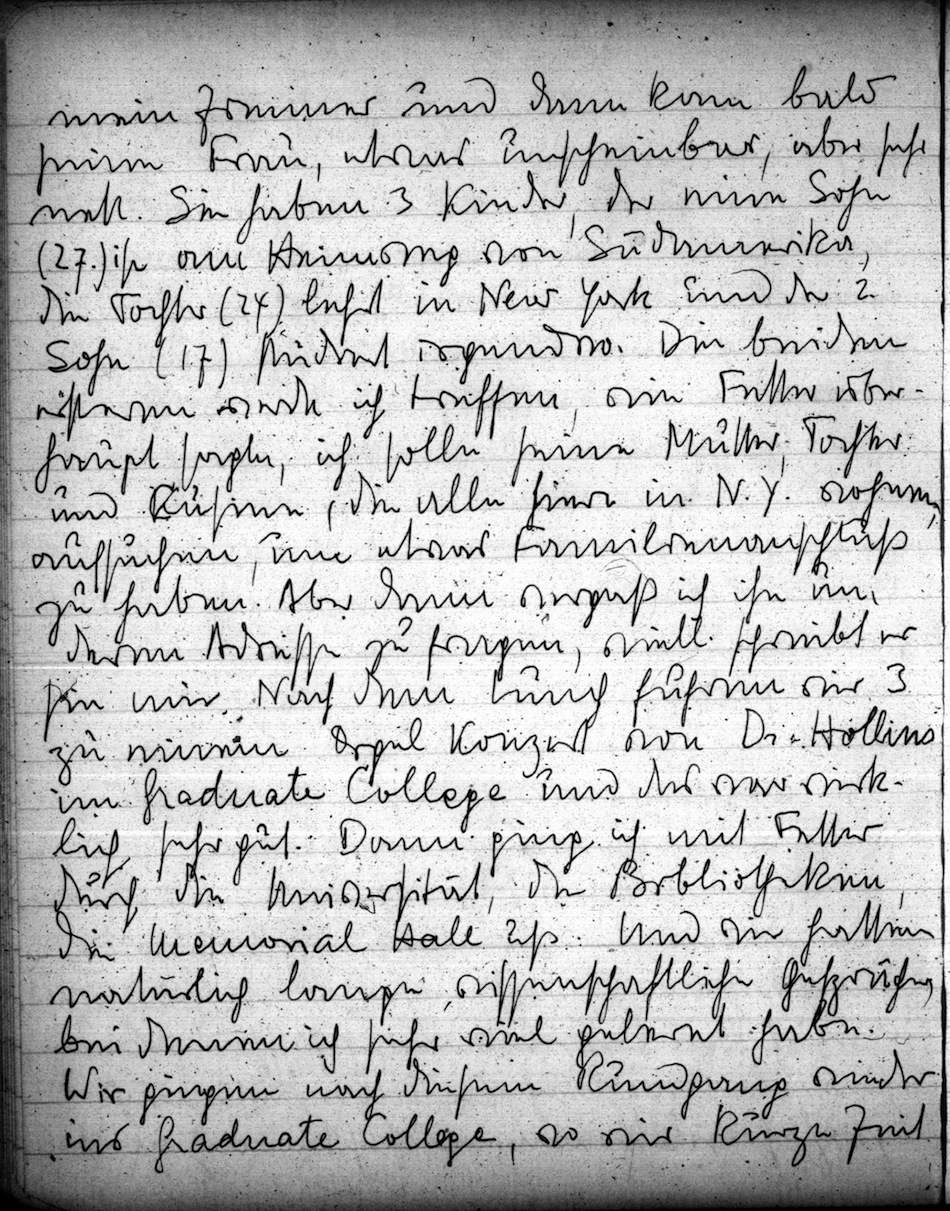 mein Zimmer und dann kam bald
seine Frau, etwas unscheinbar, aber sehr
nett. Sie haben 3 Kinder, der eine Sohn
(27.) ist am Heimweg von Südamerika,
die Tochter (24) lehrt in New York und der 2.
Sohn (17) studiert irgendwo. Die beiden
ersteren werde ich treffen, wie Fetter über-
haupt sagte, ich solle seine Mutter, Tochter
und Kusine, die alle hier in N.Y. wohnen,
aufsuchen, um etwas Familienanschluß
zu haben. Aber dann vergaß ich ihn um
deren Adresse zu fragen, viell. schreibt er
sie mir. Nach dem Lunch fuhren wir 3
zu einem Orgel Konzert von Dr. Hollins
im Graduate College und das war wirk-
lich sehr gut. Dann ging ich mit Fetter
durch die Universität, die Bibliotheken,
die Memorial Hall usf. Und wir hatten
natürlich lange wissenschaftliche Gespräche,
bei denen ich sehr viel gelernt habe.
Wir gingen nach diesem Rundgang wieder
ins Graduate College, wo wir kurze Zeit